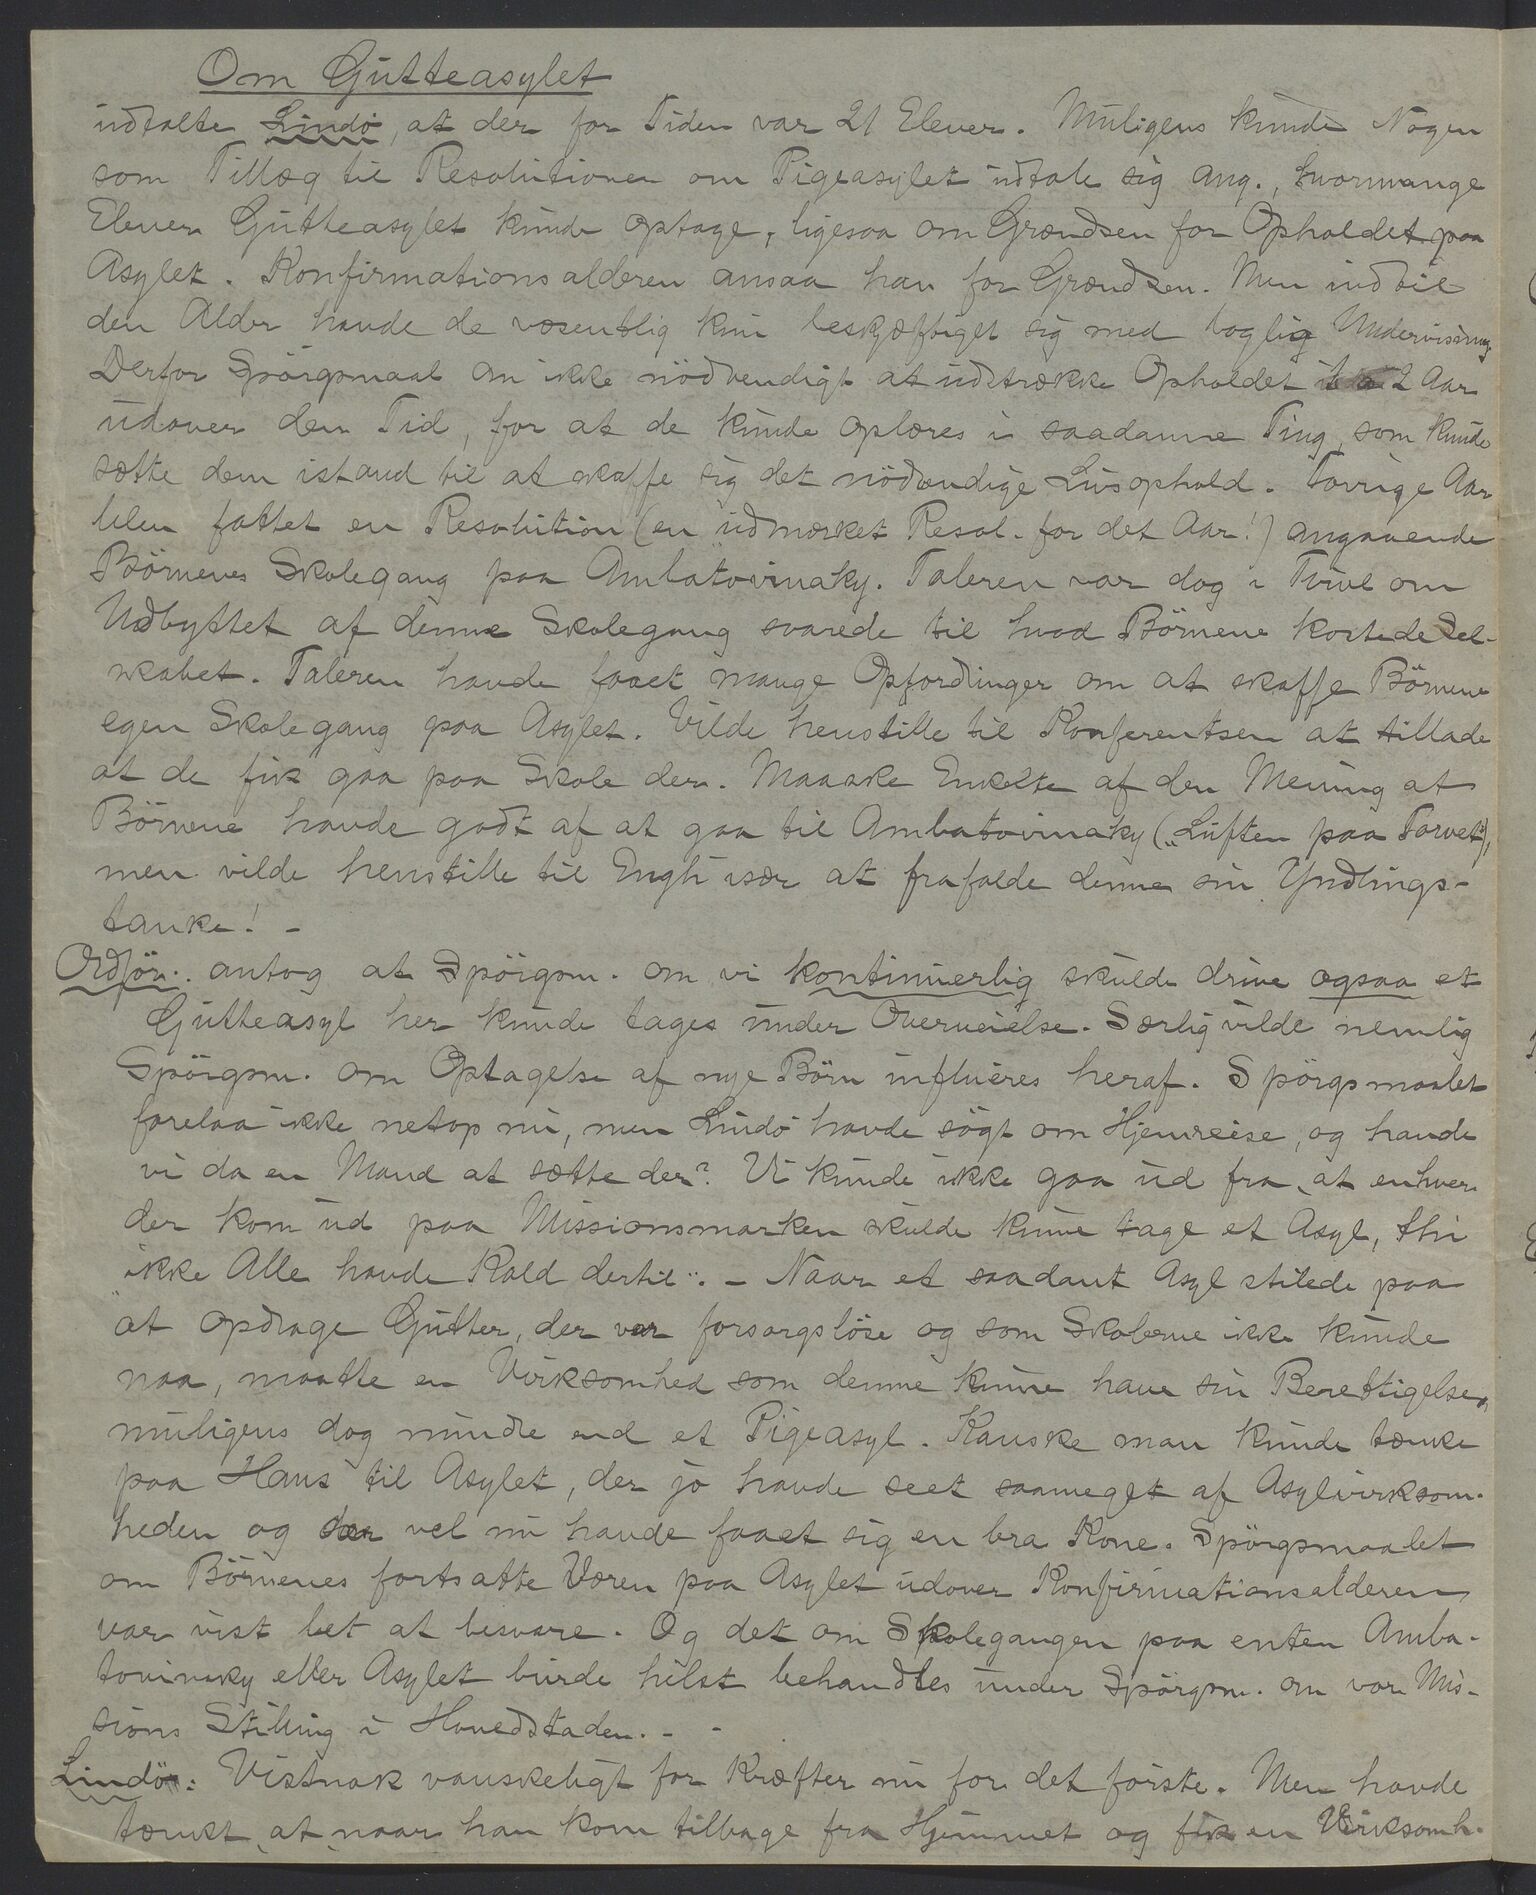 Om Gutteasylet
udtalte Lindö, at der for Tiden var 21 Elever. Muligens kunde Nogen
som Tillæg til Resolutionen om Pigeasylet udtale sig ang., hvormange
Elever Gutteasylet kunde optage, ligesaa om Grændsen for Opholdet paa
Asylet. Konfirmationsalderen ansaa han for Grændsen. Men indtil
den Alder havde de væsentlig kun beskjæftiget sig med boglig Undervisning.
Derfor Spörgsmaal om ikke nödvendigt at udstrække Opholdet 2 Aar
udover den Tid, for at de kunde oplæres i saadanne Ting, som kunde
sætte dem istand til at skaffe sig det nödvendige Livsophold. Forrige Aar
blev fattet en Resolution (en udmærket Resol. for det Aar!) angaaende
Börnenes Skolegang paa Ambatovinaky. Taleren var dog i Tvivl om
Udbyttet af denne Skolegang svarede til hvad Börnene kostede Sel-
skabet. Taleren havde faaet mange Opfordringer om at skaffe Börnene
egen Skolegang paa Asylet. Vilde henstille til Konferentsen at tillade
at de fik gaa paa Skole der. Maaske Enkelte af den Mening at
Börnene havde godt af at gaa til Ambatovinaky („Luften paa Torvet“),
men vilde henstille til Engh især at frafalde denne sin Yndlings-
tanke! -
Ordför. antog at Spörgsm. om vi kontinuerlig skulde drive ogsaa et
Gutteasyl her kunde tages under Overveielse. Særlig vilde nemlig
Spörgsm. om Optagelse af nye Börn influeres heraf. Spörgsmaalet
forelaa ikke netop nu, men Lindö havde sögt om Hjemreise, og havde
vi da en Mand at sætte der? Vi kunde ikke gaa ud fra, at enhver
der kom ud paa Missionsmarken skulde kunne tage et Asyl, thi
ikke Alle havde Kald dertil. - Naar et saadant Asyl stilede paa
at opdrage Gutter, der var forsorgslöse og som Skolerne ikke kunde
naa, maatte en Virksomhed som denne kunne have sin Berettigelse,
muligens dog mindre end et Pigeasyl. Kanske man kunde tænke
paa Hans til Asylet, der jo havde seet saameget af Asylvirksom-
heden og vel nu havde faaet sig en bra Kone. Spörgsmaalet
om Börnenes fortsatte Væren paa Asylet udover Konfirmationsalderen
var vist let at besvare. Og det om Skolegangen paa enten Amba-
tovinaky eller Asylet burde helst behandles under Spörgsm. om vor Mis-
sions Stilling i Hovedstaden. - -
Lindö: Vistnok vanskeligt for Kræfter nu for det förste. Men havde
tænkt, at naar han kom tilbage fra Hjemmet og fik en Virksomh.